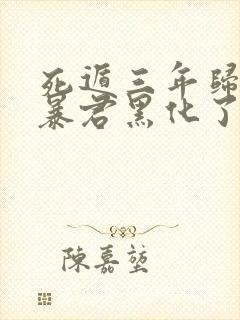 死遁三年歸
暴君黑化了
陳嘉堃